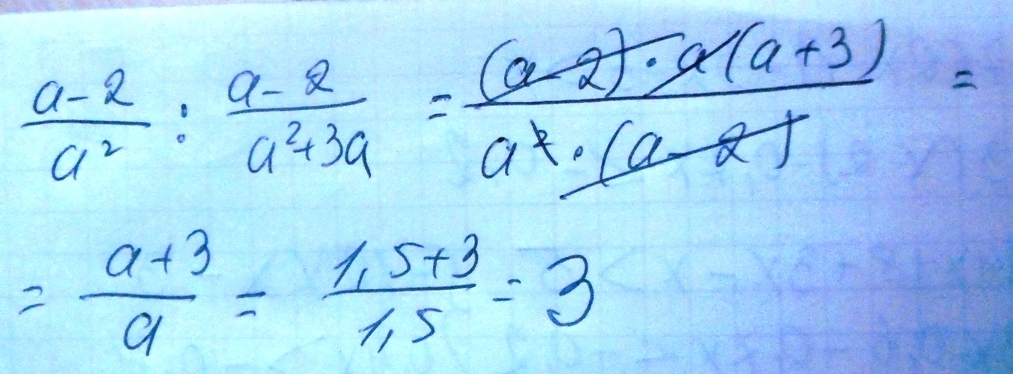 (a-2)/a² : (a-2)/(a²+3a) = ((a-2)·a(a+3))/(a²·(a-2)) =
= (a+3)/a = (1,5+3)/1,5 = 3